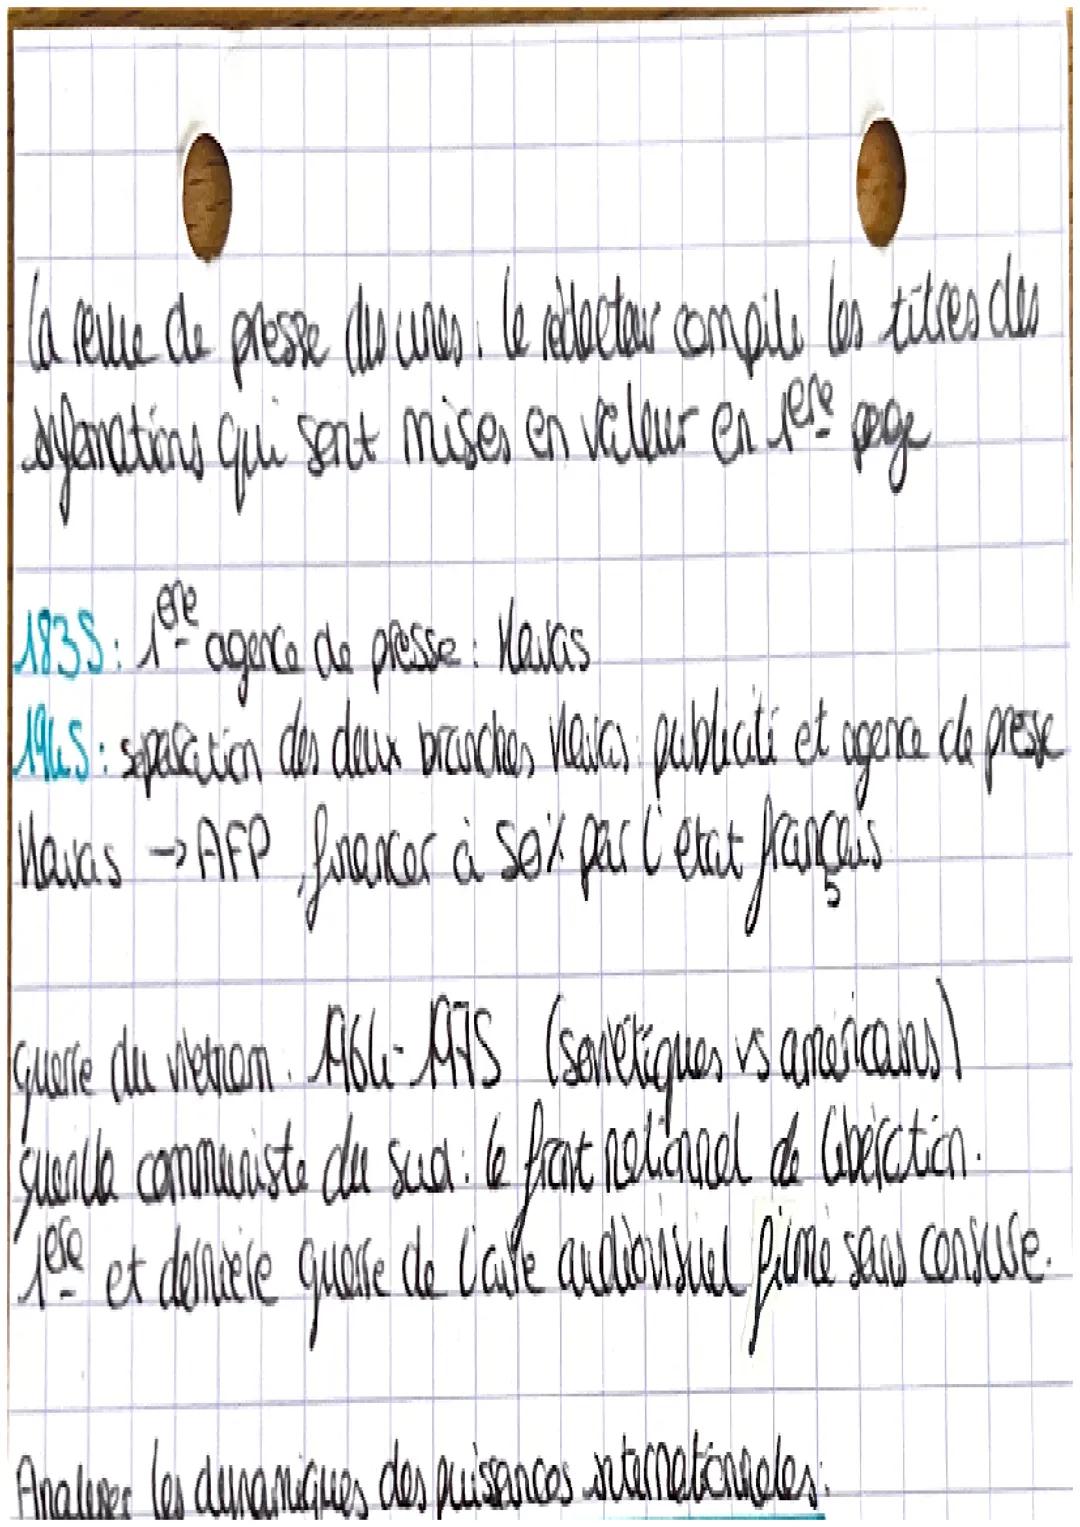 la revue de presse des unes : le rédacteur compile les titres des
informations qui sont mises en valeur en 1ère page
1835 : 1ère agence de presse : Havas
1945 : séparation des deux branches Havas : publicité et agence de presse
Havas → AFP, financer à 50% par l'état français
guerre du vietnam : 1964-1975 (soviétiques vs américains)
guerilla communiste du sud : le front national de libération.
1ère et dernière guerre de l'aire audiovisuel filmé sans censure.
Analyser les dynamiques des puissances internationales :